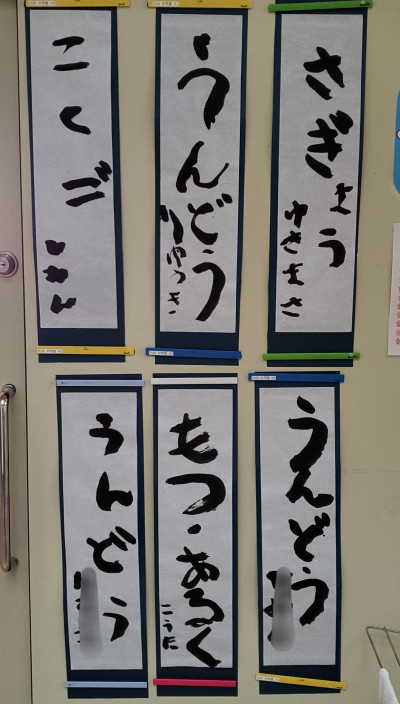 さぎょう
ゆきまさ
うんどう
りゅうき
こくご
うんどう
もつ・あるく
こうた
うんどう